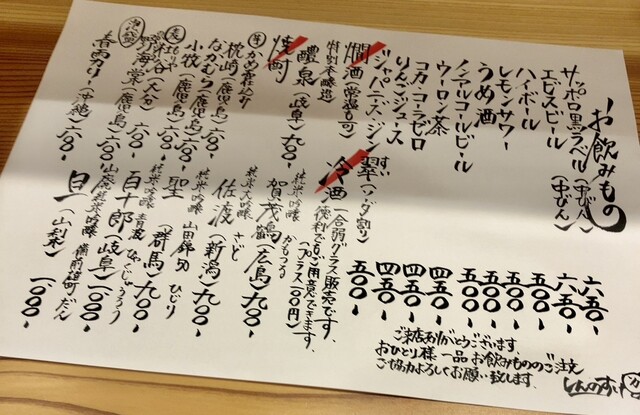 お飲みもの
サッポロ黒ラベル(中びん) 六五〇-
ヱビスビール(中びん) 六五〇-
ハイボール 五〇〇-
レモンサワー 五〇〇-
うめ酒 五〇〇-
ノンアルコールビール 五〇〇-
ウーロン茶 四五〇-
コカ・コーラゼロ 四五〇-
りんごジュース 四五〇-
ジャパニーズ・ジン 翠(ソーダ割) 五〇〇-
すい
燗酒(常温も可)
特別本醸造
醴泉(岐阜)九〇〇-
焼酎
芋
かめ壺仕込み
枕崎(鹿児島)六〇〇-
なかむら(鹿児島)六〇〇-
小牧(鹿児島)六〇〇-
麦
谷(大分)六〇〇-
海堂(鹿児島)六〇〇-
泡盛
春雨カリー(沖縄)六〇〇-
冷酒
(一合弱グラス販売です。
徳利でもご用意できます。
(プラス100円)
純米吟醸 かもつる
賀茂鶴(広島)九〇〇-
純米大吟醸 さど
佐渡(新潟)九〇〇-
純米吟醸 山田錦 ひじり
聖(群馬)九〇〇-
純米吟醸 青波 ひゃくじゅうろう
百十郎(岐阜)一〇〇〇-
山廃純米吟醸 備前雄町 だん
旦(山梨)一〇〇〇-
ご来店ありがとうございます。
おひとり様一品お飲みもののご注文
ご協力よろしくお願い致します。